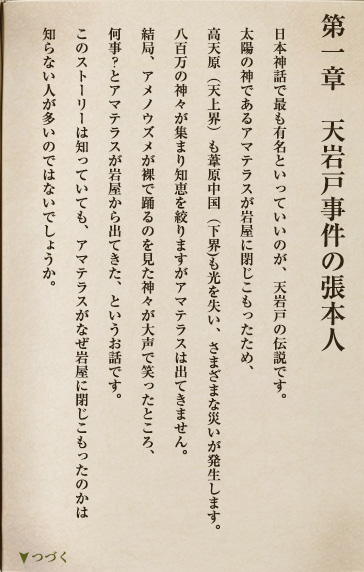 第一章　天岩戸事件の張本人
日本神話で最も有名といっていいのが、天岩戸の伝説です。
太陽の神であるアマテラスが岩屋に閉じこもったため、
高天原（天上界）も葦原中国（下界）も光を失い、さまざまな災いが発生します。
八百万の神々が集まり知恵を絞りますがアマテラスは出てきません。
結局、アメノウズメが裸で踊るのを見た神々が大声で笑ったところ、
何事？とアマテラスが岩屋から出てきた、というお話です。
このストーリーは知っていても、アマテラスがなぜ岩屋に閉じこもったのかは
知らない人が多いのではないでしょうか。
▼つづく